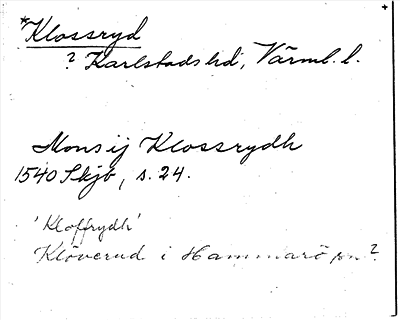 *Klossryd
? Karlstads hd, Värml. l.
Monsij Klossrydh
1540 Skjb, s. 24.
'Kloffrydh'
Klöverud i Hammarö sn?